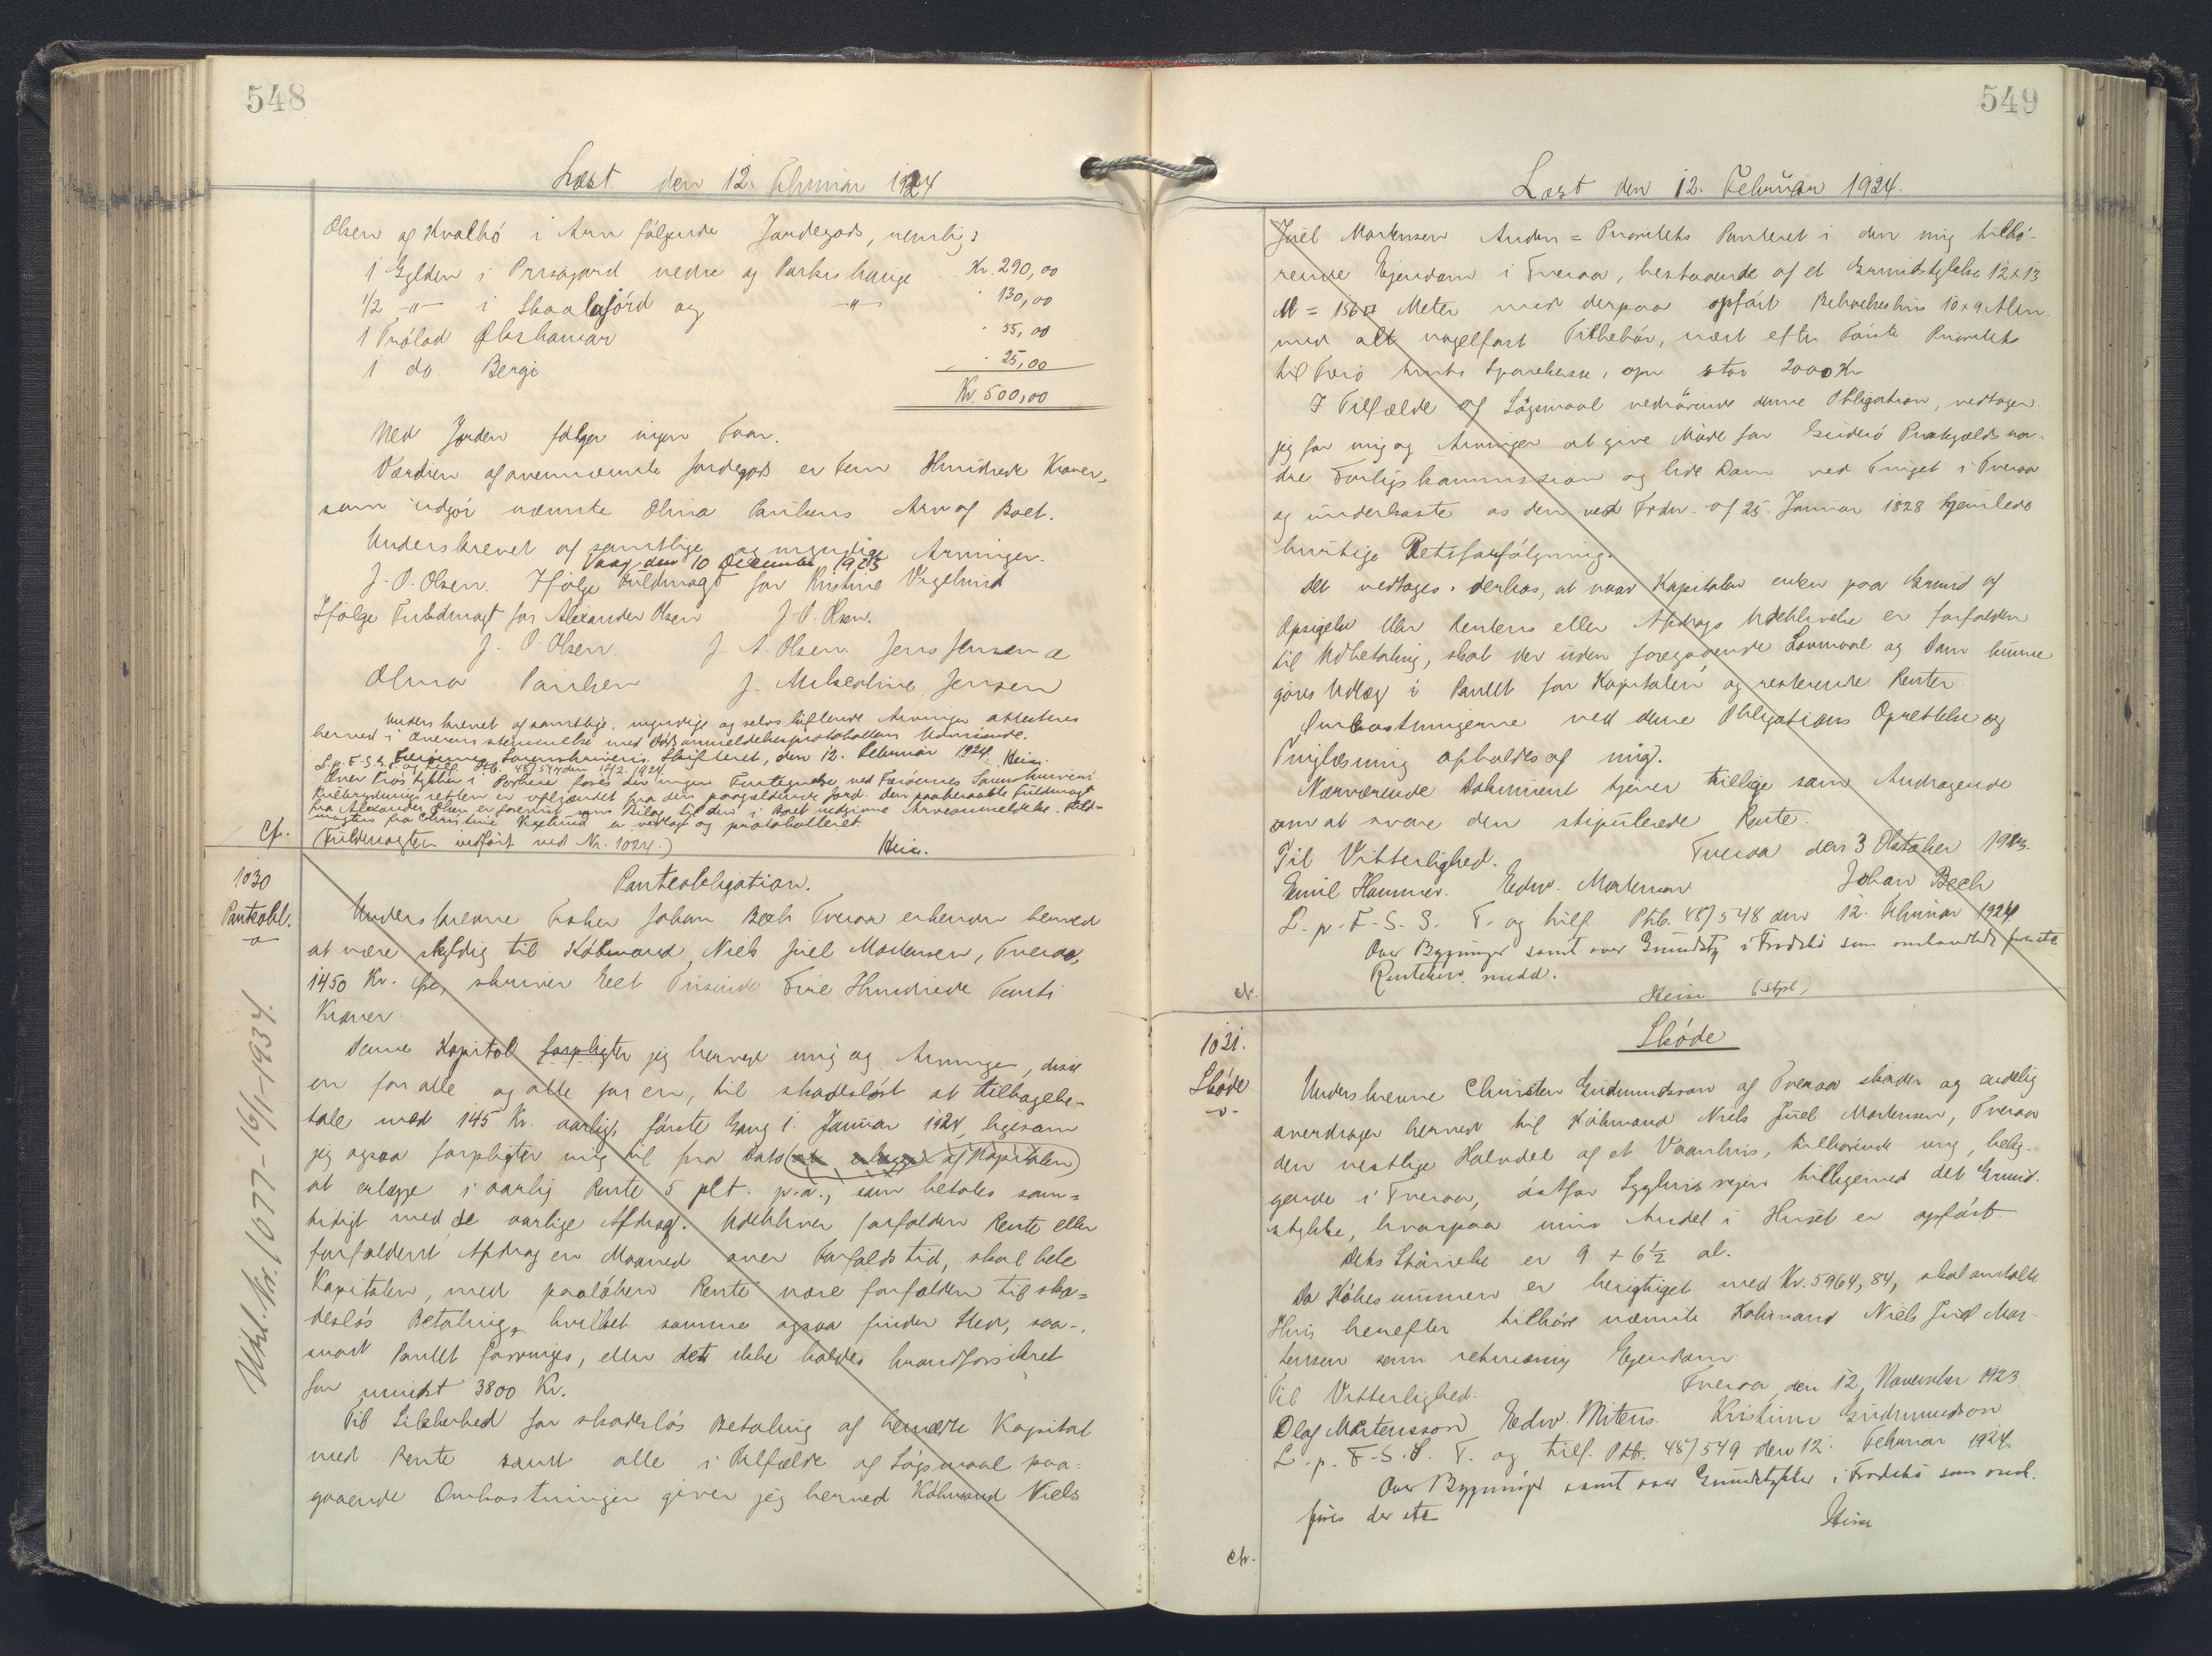 548
Læst den 12. Februar 1924
Olsen af Kvalbö i Arv følgende Jordegods, nemlig:
1 Gylden i nedre og Parkishauge Kr. 290,00
1/2 -"- i Skaalafjörd og -"- 130,00
1 55,00
1 do. Bergi 25,00
Kr. 500,00
Med Jorden følger ingen Faar.
Værdien af ovennævnte Jordegods er Fem Hundrede Kroner,
som udgør nævnte Olina Paulsens Arv af Boet.
Underskrevet af samtlige og myndige Arvinger.
Vaag den 10 December 1923
J. P. Olsen. Ifølge Fuldmagt for Kristine Vagelund
Ifølge Fuldmagt for Alexander Olsen J. P. Olsen.
J. P. Olsen. J. A. Olsen. Jens Jensen
Olina Paulsen J. Jensen
Underskrevet af samtlige, myndige og selvskiftende Arvinger attesteres
herved i Overensstemmelse med Dødsanmeldelsesprotokollens Udvisende.
Færöernes Sorenskriveris Skifteret, den 12. Februar 1924. Heise.
L. p. F. S. S. T. og tilf. Ptb. 48/547 den 12/2 1924.
Over i Porkere haves der ingen Fortegnelse ved Færöernes Sorenskriveri
er ophævet fra den paagældende Jord. Den paaberaabte Fuldmagt
fra Alexander Olsen er forevist som Bilag til den i Boet indgivne Arveanmeldelse. Fuld-
magten fra Christine Vagelund er vedlagt og protokolleret.
Cf. (Fuldmagten indført ved Nr. 1024.) Heise.
1030
Panteobl.
Panteobligation.
Underskrevne Fisker Johan Bech Tveraa erkender herved
at være skyldig til Købmand Niels Juel Mortensen, Tveraa,
1450 Kr. Øre, skriver Eet Tusinde Fire Hundrede Femti
Kroner.
Denne Kapital forpligter jeg herved mig og Arvinger, disse
en for alle og alle for en, til skadesløst at tilbagebe-
tale med 145 Kr. aarlig, første Gang 1. Januar 1924, ligesom
jeg ogsaa forpligter mig til fra Dato (at erlægge af Kapitalen)
at erlægge i aarlig Rente 5 pCt. p.a., som betales sam-
tidigt med de aarlige Afdrag. Udebliver forfalden Rente eller
forfaldent Afdrag en Maaned over Forfaldstid, skal hele
Kapitalen, med paaløben Rente være forfalden til ska-
desløs Betaling, hvilket samme ogsaa finder Sted, saa-
snart Pantet forringes, eller dets ikke holdes brandforsikret
for mindst 3800 Kr.
Til Sikkerhed for skadesløs Betaling af bemeldte Kapital
med Rente samt alle i Tilfælde af Søgsmaal paa-
gaaende Omkostninger giver jeg herved Købmand Niels
Udsl. Nr. 1077-16/1-1934.
549
Læst den 12. Februar 1924.
Juel Mortensen Anden=Prioritets Panteret i den mig tilhö-
rende Ejendom i Tveraa, bestaaende af et Grundstykke 12x13
M = 156 □ Meter med derpaa opført Beboelseshus 10x9 Alen
med alt nagelfast Tilbehør, næst efter Første Prioritet
til Færö Amts Sparekasse, opr. stor 2000 Kr
I Tilfælde af Søgsmaal vedrørende denne Obligation, vedtager
jeg for mig og Arvinger at give Møde for Suderö Præstegjælds nor-
dre Forligskommission og lide Dom ved Tinget i Tveraa
og underkaste os den ved Frdn. af 25. Januar 1828 hjemlede
hurtige Retsforfølgning.
Det vedtages derhos, at naar Kapitalen enten paa Grund af
Opsigelse eller Rentens eller Afdrags Udeblivelse er forfalden
til Udbetaling, skal der uden foregaaende Lovmaal og Dom kunne
göres Udlæg i Pantet for Kapitalen og resterende Renter.
Omkostningerne ved denne Obligations Oprettelse og
Tinglæsning afholdes af mig.
Nærværende Dokument tjener tillige som Andragende
om at svare den stipulerede Rente.
Tveraa den 3 Oktober 1923.
Til Vitterlighed. Johan Bech
Emil Hammer. Edw. Mortensen
L. p. F. S. S. T. og tilf. Ptb. 48/548 den 12. Februar 1924
Over Bygninger samt over Grundstk. i Frodebö som omhandlede føres ste
Rentebev. medd.
Heise (Stpl.)
cf.
1031.
Sköde
Sköde
Underskrevne Christen Gudmundsson af Tveraa sköder og endelig
overdrager herved til Købmand Niels Juel Mortensen, Tveraa
den vestlige Halvdel af et Vaanhus, tilhørende mig, belig-
gende i Tveraa, østfor Sygehusvejen tilligemed det Grund-
stykke, hvorpaa min Andel i Huset er opført
Dets Størrelse er 9 + 6½ al.
Da Købesummen er berigtiget med Kr. 5964,84, skal omtalte
Hus herefter tilhøre nævnte Købmand Niels Juel Mor-
tensen som retmæssig Ejendom.
Tveraa den 12. November 1923.
Til Vitterlighed.
Olaf Mortensson Edw. Mitens. Kristinn Gudmundson
L. p. F. S. S. T. og tilf. Ptb. 48/549 den 12. Februar 1924.
Over Bygninger samt over Grundstykker i Frodebö som omh.
føres der ste
Heise
cf.